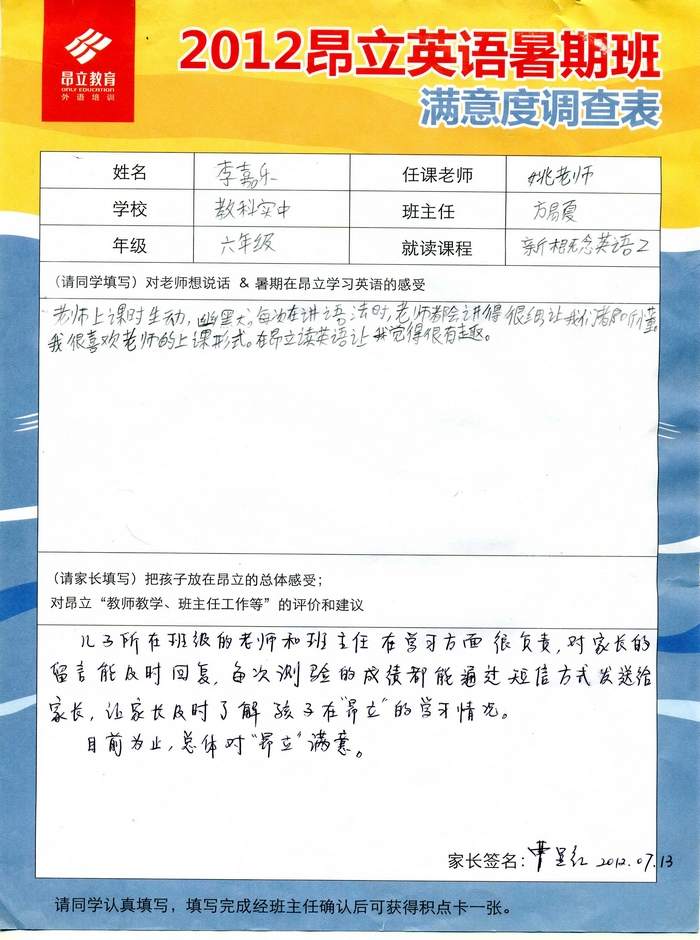 昂立教育
ONLY EDUCATION
外语培训
2012昂立英语暑期班
满意度调查表
姓名 李嘉乐 任课老师 姚老师
学校 教科实中 班主任 方易夏
年级 六年级 就读课程 新概念英语2
(请同学填写)对老师想说话 & 暑期在昂立学习英语的感受
老师上课时生动,幽默。每次在讲语法时,老师都会讲得很细让我们都听懂
我很喜欢老师的上课形式。在昂立读英语让我觉得很有趣。
(请家长填写)把孩子放在昂立的总体感受;
对昂立“教师教学、班主任工作等”的评价和建议
儿子所在班级的老师和班主任在学习方面很负责,对家长的
留言能及时回复,每次测验的成绩都能通过短信方式发送给
家长,让家长及时了解孩子在“昂立”的学习情况。
目前为止,总体对“昂立”满意。
家长签名: 2012.07.13
请同学认真填写,填写完成经班主任确认后可获得积点卡一张。